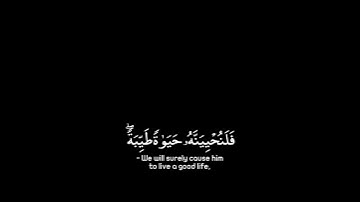 فَلَنُحْيِيَنَّهُۥ حَيَوٰةً طَيِّبَةً ۖ
- We will surely cause him
to live a good life,